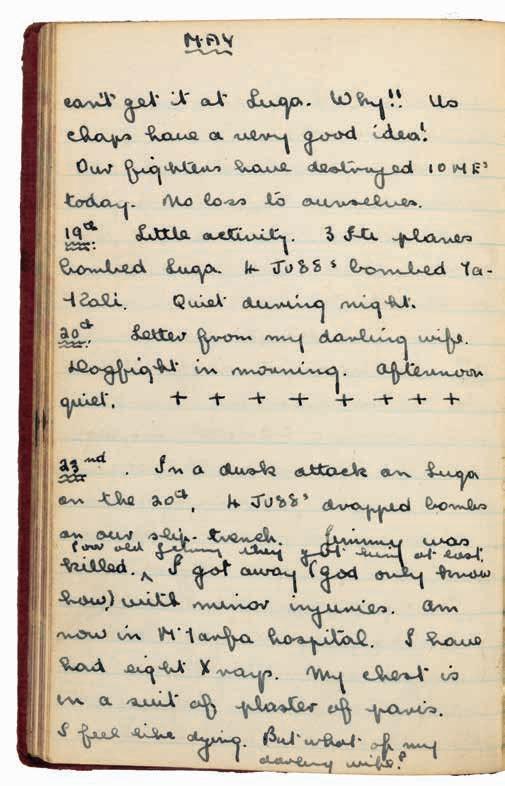 MAY
can't get it at Luqa. Why!! Us
chaps have a very good idea!
Our fighters have destroyed 10 ME's
today. No loss to ourselves.
19th. Little activity. 3 Ite planes
bombed Luqa. 4 JU88's bombed Ta-
Kali. Quiet during night.
20th. Letter from my darling wife.
Dogfight in morning. Afternoon
quiet. + + + + + + + +
23nd. In a dusk attack on Luqa
on the 20th, 4 JU88's dropped bombs
on our slip-trench. Jimmy was
Poor old Jimmy they got him at last.
killed. ^ I got away (god only know
how) with minor injuries. Am
now in M'Tarfa hospital. I have
had eight X rays. My chest is
in a suit of plaster of paris.
I feel like dying. But what of my
darling wife?